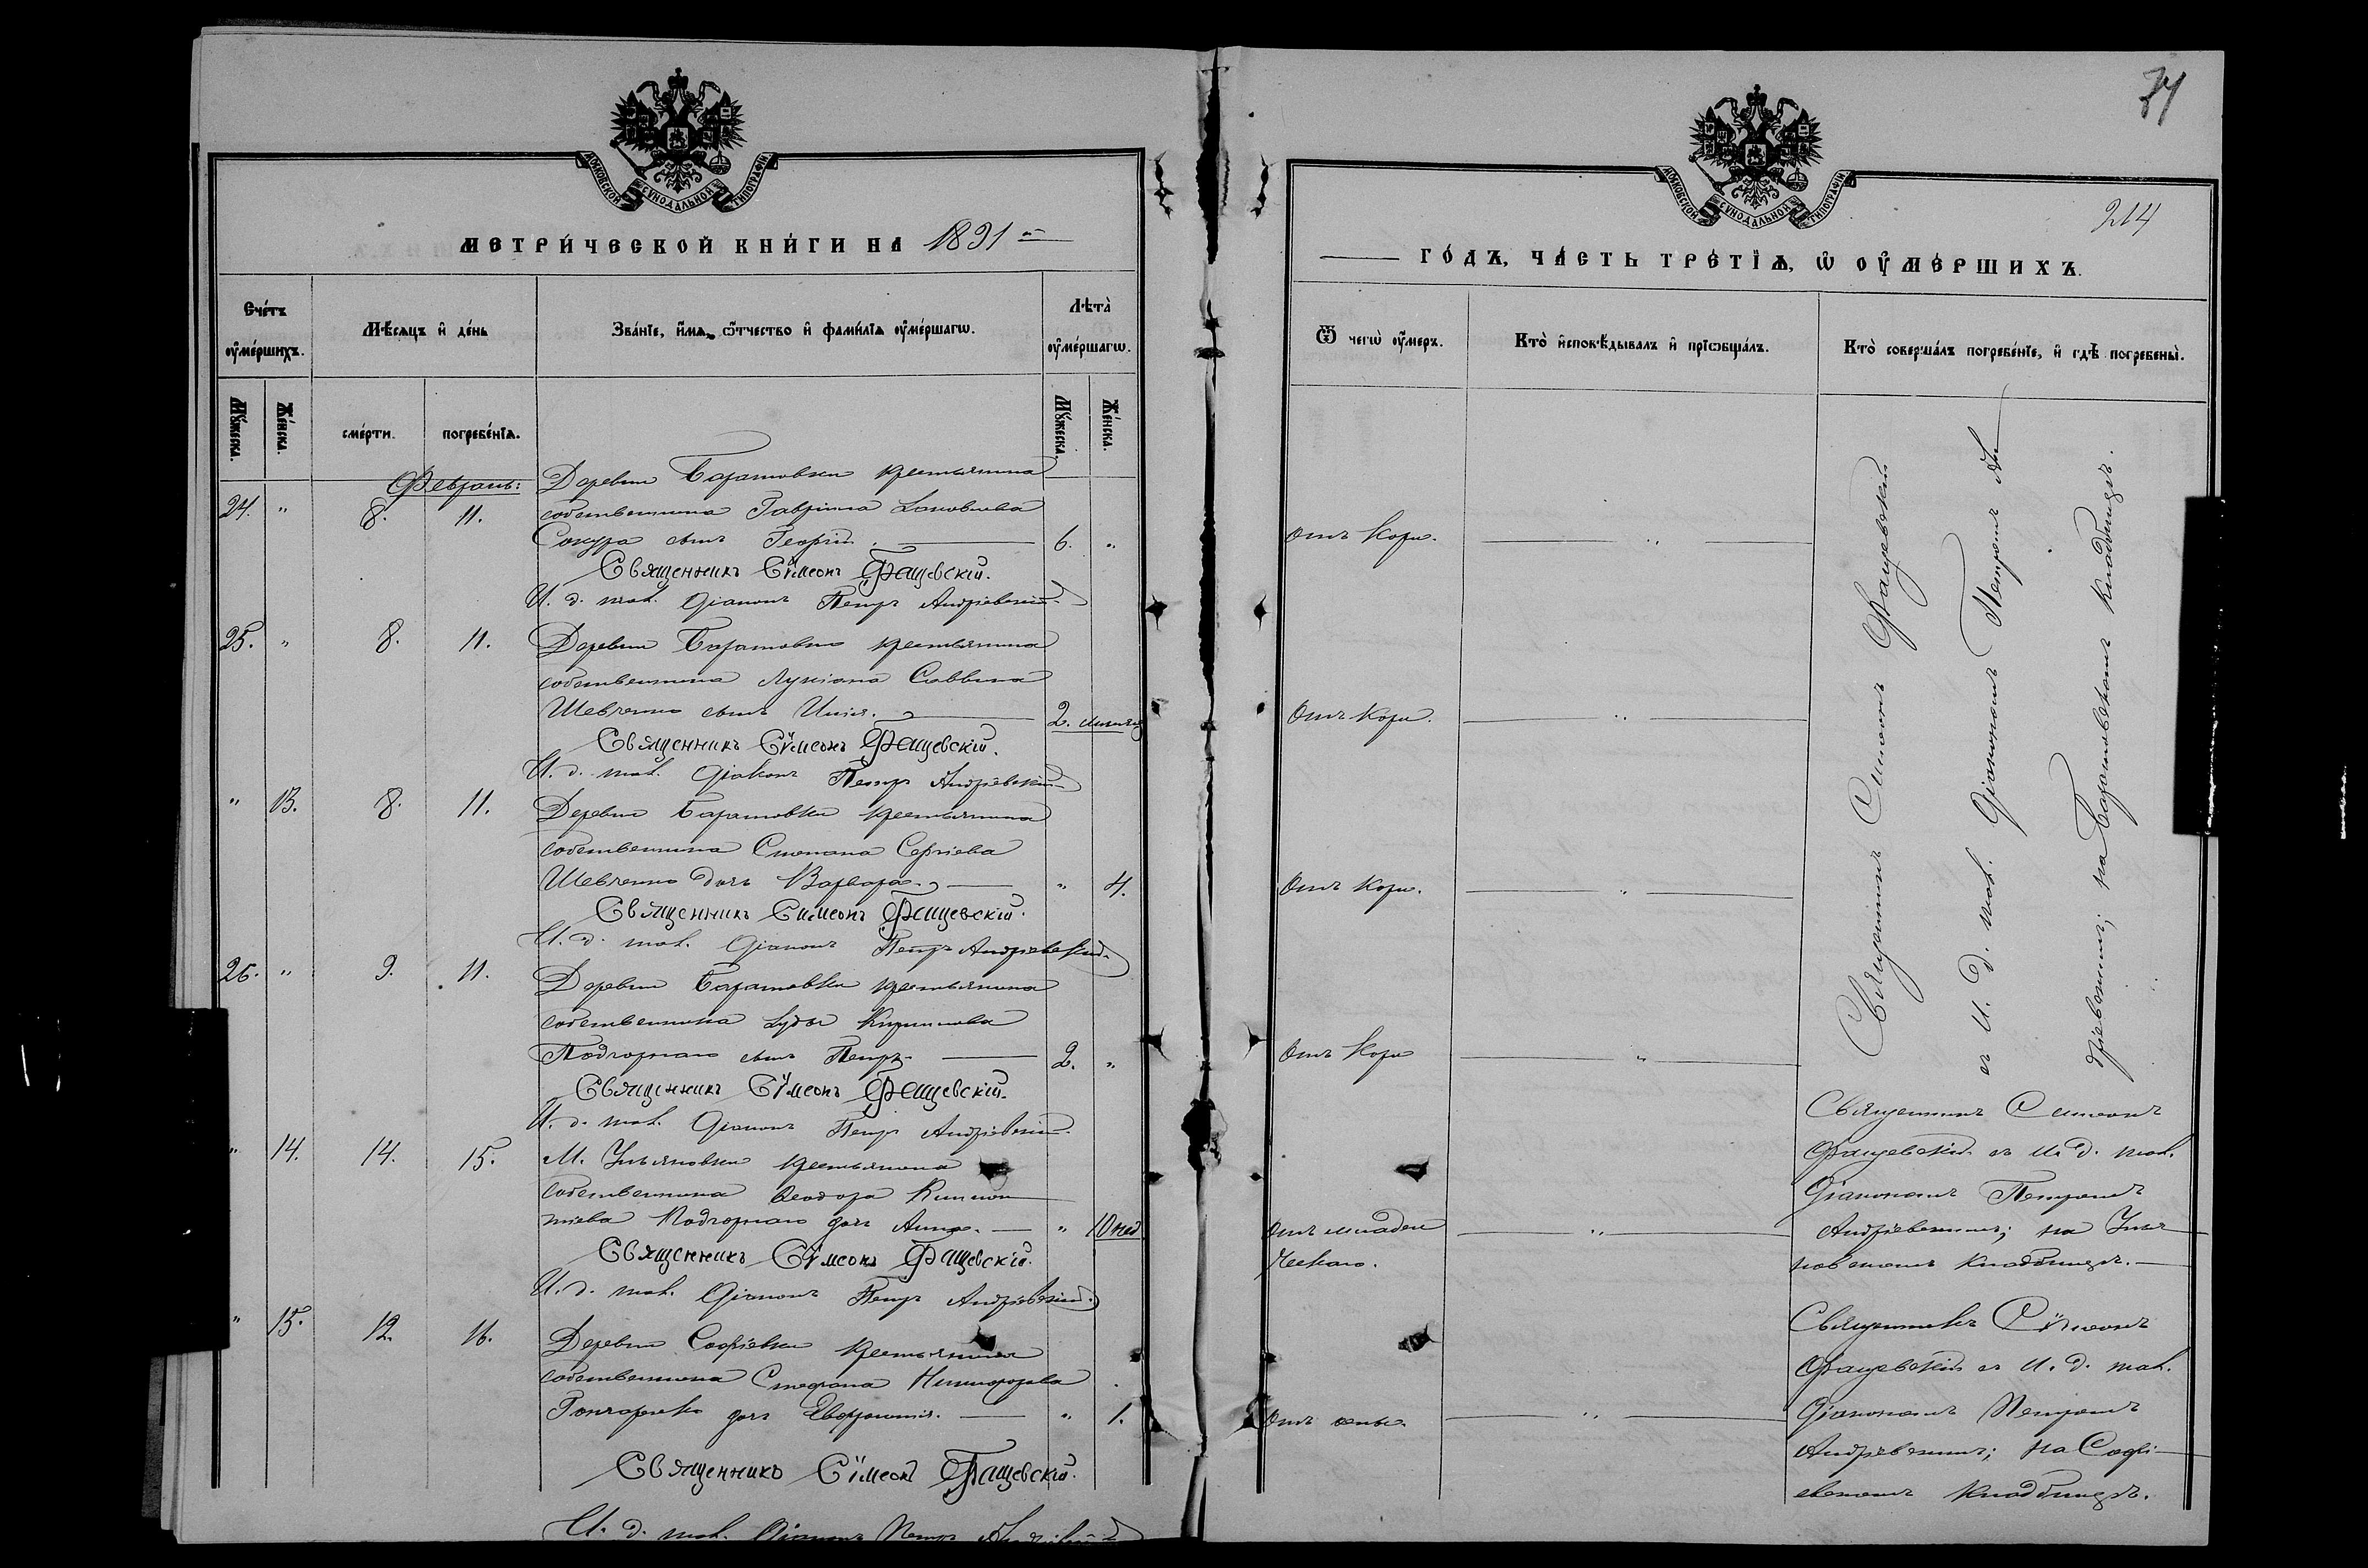 МОСКОВСКОЙ СУНОДАЛЬНОЙ ТИПОГРАФІИ
МЕТРИ́ЧЕСКОЙ КНИ́ГИ НА 1891 -
Счётъ оу҆ме́ршихъ.
Мѣ́сяцъ и҆ де́нь
Зва́нїе, и҆́мѧ, ѻ҆́тчество и҆ фами́лїѧ оу҆ме́ршагѡ.
Лѣта̀ оу҆ме́ршагѡ.
Мꙋ́жеска.
Же́нска.
сме́рти.
погребе́нїѧ.
Мꙋ́жеска.
Же́нска.
Февраль:
24. " 8. 11.
Деревни Баратовки крестьянина
собственника Гавріила Іаковлева
Сокура сынъ Георгій. 6. "
Священникъ Сѵмеонъ Фащевскій.
И. д. псал. Діаконъ Петръ Андріевскій
25. " 8. 11.
Деревни Баратовки крестьянина
собственника Лукіана Саввина
Шевченко сынъ Илія. 2.
Священникъ Сѵмеонъ Фащевскій.
И. д. псал. Діаконъ Петръ Андріевскій
" 13. 8. 11.
Деревни Баратовки крестьянина
собственника Стефана Сергіева
Шевченко дочь Варвара. " 4.
Священникъ Симеонъ Фащевскій.
И. д. псал. Діаконъ Петръ Андріевскій.
26. " 9. 11.
Деревни Баратовки крестьянина
собственника Іуды Кириллова
Подгорнаго сынъ Петръ. 2. "
Священникъ Сѵмеонъ Фащевскій.
И. д. псал. Діаконъ Петръ Андріевскій.
" 14. 14. 15.
М. Ульяновки крестьянина
собственника Ѳеодора Климен
тіева Подгорнаго дочь Анна. " 10 нед
Священникъ Сѵмеонъ Фащевскій.
И. д. псал. Діаконъ Петръ Андріевскій.
" 15. 12. 16.
Деревни Софіевки крестьянина
собственника Стефана Никифорова
Гончаренко дочь Евфросинія. " 1.
Священникъ Сѵмеонъ Фащевскій.
И. д. псал. Діаконъ Петръ Андріевскій
МОСКОВСКОЙ СУНОДАЛЬНОЙ ТИПОГРАФІИ
214
ГО́ДЪ, ЧА́СТЬ ТРЕ́ТЇѦ, Ѡ҆ ОУ҆МЕ́РШИХЪ.
Ѿ чегѡ̀ оу҆́меръ.
Кто̀ и҆сповѣ́дывалъ и҆ прїѡбща́лъ.
Кто̀ соверша́лъ погребе́нїе, и҆ гдѣ̀ погребены̀.
Отъ Кори.
Отъ Кори.
Отъ Кори.
Отъ Кори
Отъ младен
ческаго.
Священникъ Симеонъ Фащевскій
съ И. д. псал. Діакономъ Петромъ Ан
дріевскимъ; на Баратовскомъ кладбищѣ.
Священникъ Симеонъ
Фащевскій съ И. д. псал.
Діакономъ Петромъ
Андріевскимъ; на Улья
новскомъ кладбищѣ.
Священникъ Сѵмеонъ
Фащевскій съ И. д. псал.
Діакономъ Петромъ
Андріевскимъ; на Софі
евскомъ кладбищѣ.